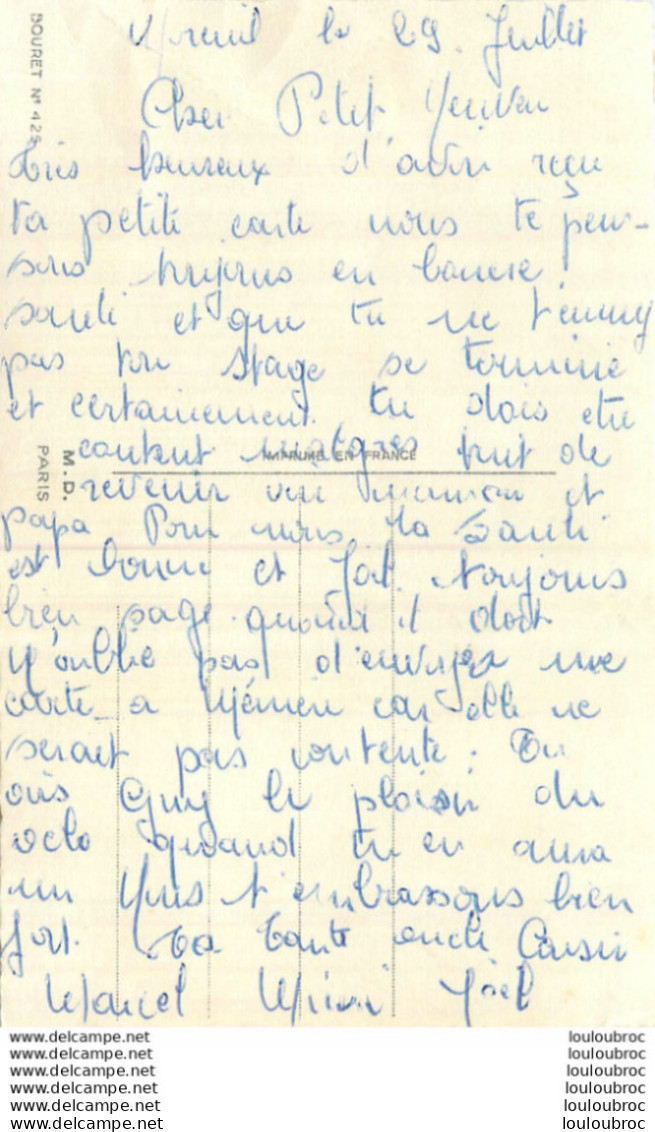 le 29 Juillet
BOURET N° 425
Cher Petit
très heureux d'avoir reçu
ta petite carte nous te pen-
sons toujours en bonne
santé et que tu ne t'ennuy
pas ton stage se termine
et certainement tu dois etre
content malgres tout de
IMPRIMÉ EN FRANCE
M.D.
PARIS
revenir voir maman et
papa Pour nous, la santé
est bonne et Joel toujours
bien sage quand il dort
N'oublie pas d'envoyer une
carte a Mémère car elle ne
serait pas contente. Tu
Guy le plaisir du
velo quand tu en aura
un Nous t'embrassons bien
fort. Ta tante oncle Cousin
Marcel Mimi Joël
www.delcampe.net louloubroc
www.delcampe.net louloubroc
www.delcampe.net louloubroc
www.delcampe.net louloubroc
www.delcampe.net louloubroc
www.delcampe.net louloubroc